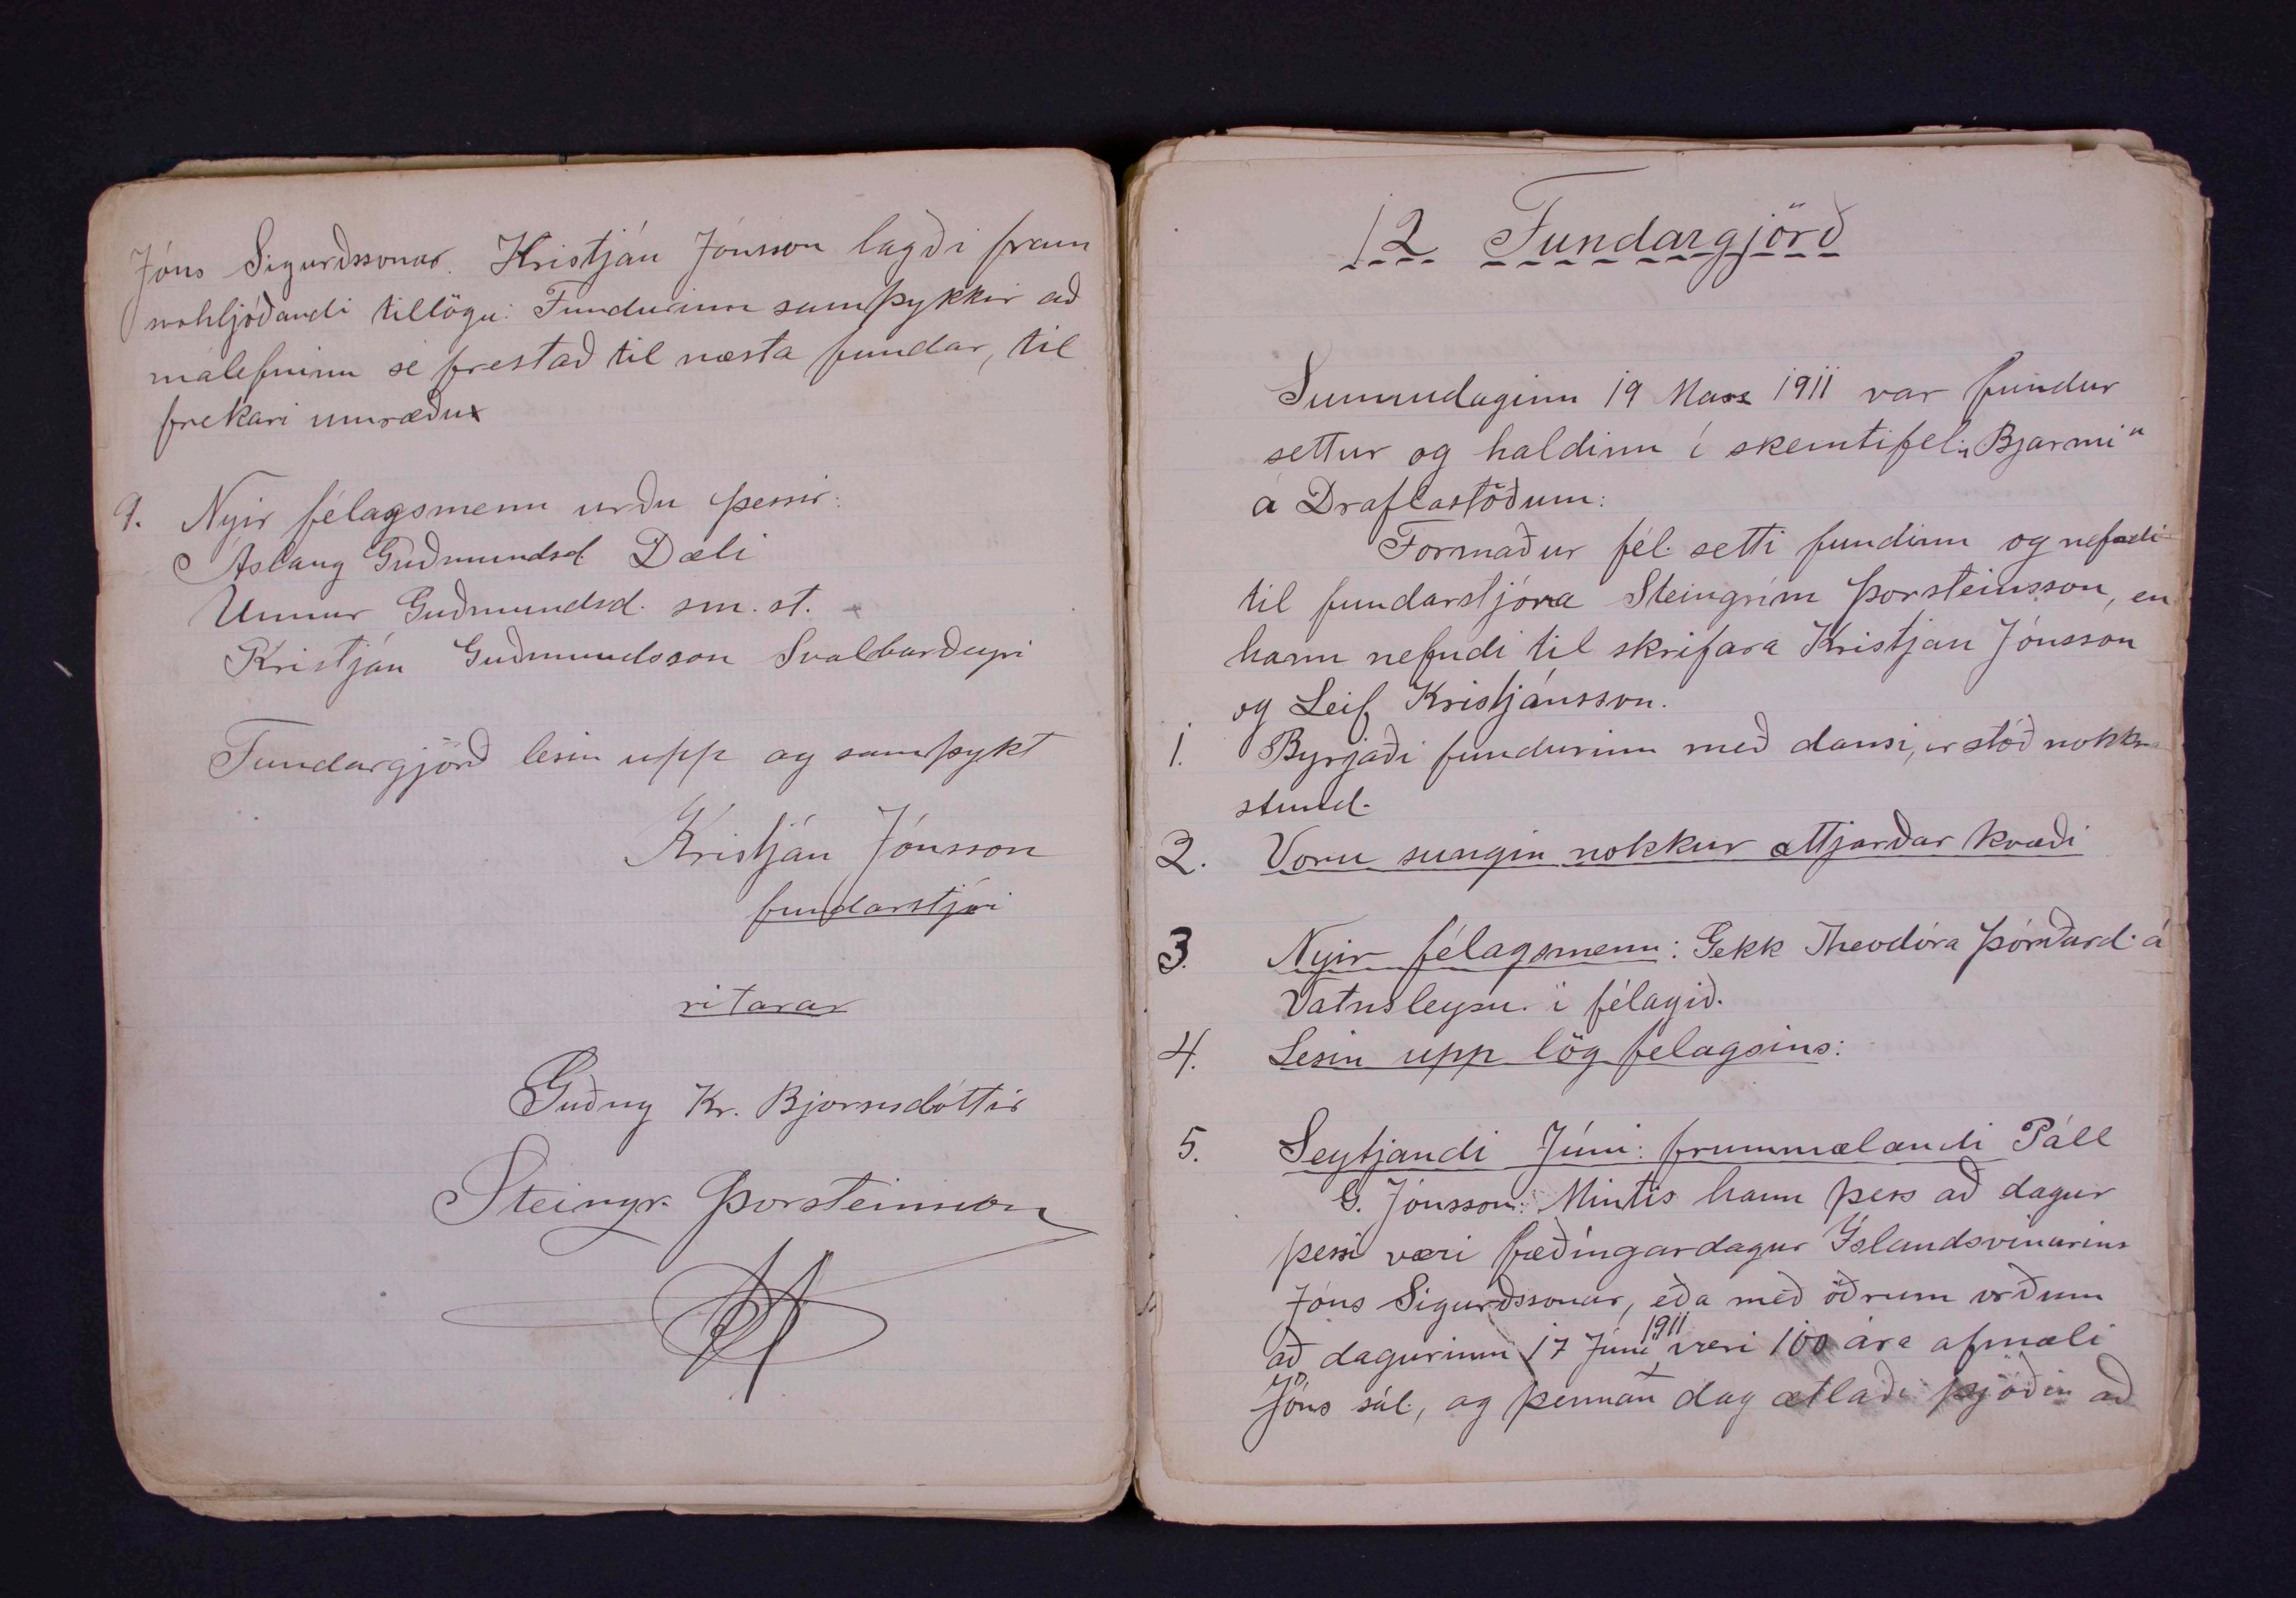 Jóns Sigurðssonar. Kristján Jónsson lagði fram
svohljóðandi tillögu: Fundurinn samþykkir að
málefninu sé frestað til næsta fundar, til
frekari umræðu
9. Nyir félagsmenn urðu þessir:
Áslaug Guðmundsd Dæli
Unnur Guðmundsd. sm. st.
Kristján Guðmundsson Svalbarðeyri
Fundargjörð lesin upp og samþykt
Kristján Jónsson
fundarstjóri
ritarar
Guðny Kr. Bjornsdóttir
Steingr. Þorsteinsson
12 Fundargjörð
Sunnudaginn 19 Mars 1911 var fundur
settur og haldinn í skemtifel. „Bjarmi"
á Draflastöðum:
Formaður fél. setti fundinn og nefndi
til fundarstjóra Steingrím Þorsteinsson, en
hann nefndi til skrifara Kristjan Jónsson
og Leif Kristjánsson.
1. Byrjaði fundurinn með dansi, er stóð nokkra
stund.
2. Voru sungin nokkur ættjarðar kvæði
3. Nyir félagsmenn: Gekk Theodóra Þórðard. á
Vatnsleysu í félagið.
4. Lesin upp lög felagsins:
5. Seytjandi Júni: frummælandi Páll
G. Jónsson: Mintis hann þess að dagur
þessi væri fæðíngardagur Íslandsvinarins
Jóns Sigurðssonar, eða með öðrum orðum
að dagurinn 17 Júni 1911 væri 100 ára afmæli
Jóns sál., og þennan dag ætlaði þjóðin að